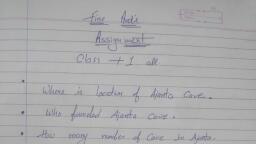 Fine Arts
Assignment
Class +1 all
• Where is location of Ajanta Cave.
• Who founded Ajanta Cave.
• How many number of Cave in Ajanta.